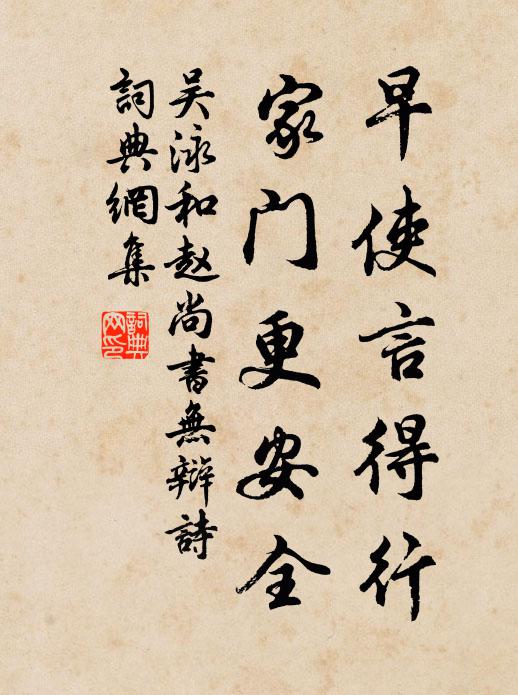 早使言得行
家门更安全
吴泳和赵尚书无辩詩
詞典網集
詞典网印